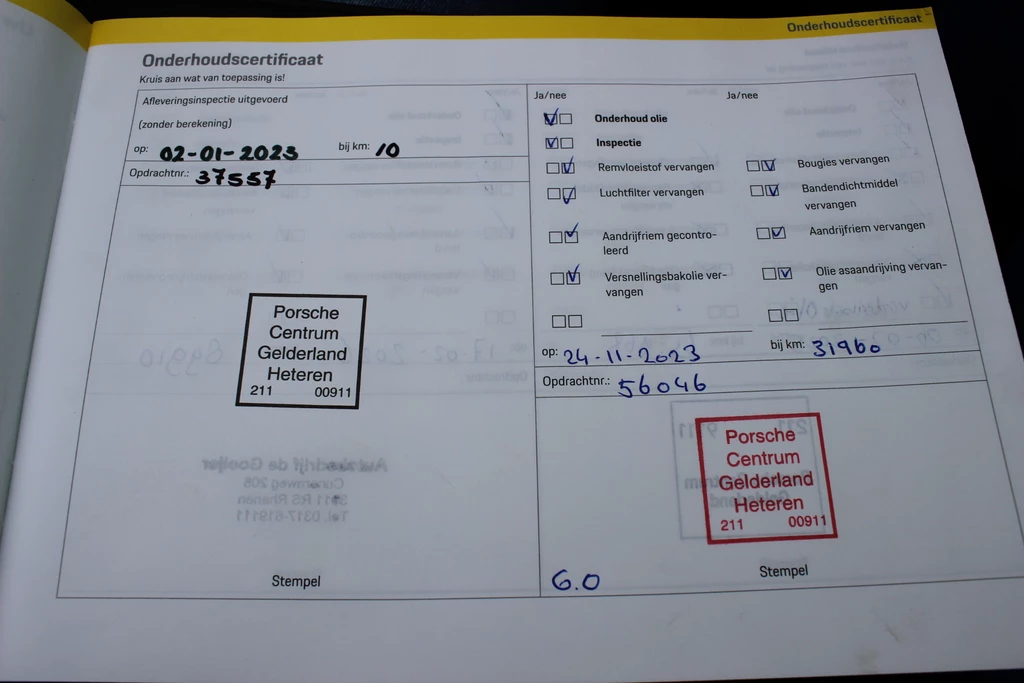 Onderhoudscertificaat
Onderhoudscertificaat
Kruis aan wat van toepassing is!
Afleveringsinspectie uitgevoerd
(zonder berekening)
op: 02-01-2023 bij km: 10
Opdrachtnr.: 37557
Porsche
Centrum
Gelderland
Heteren
211 00911
Stempel
Ja/nee Ja/nee
Onderhoud olie
Inspectie
Remvloeistof vervangen
Bougies vervangen
Luchtfilter vervangen
Bandendichtmiddel
vervangen
Aandrijfriem gecontro-
leerd
Aandrijfriem vervangen
Versnellingsbakolie ver-
vangen
Olie asaandrijving vervan-
gen
op: 24-11-2023 bij km: 31960
Opdrachtnr.: 56046
Porsche
Centrum
Gelderland
Heteren
211 00911
6.0
Stempel